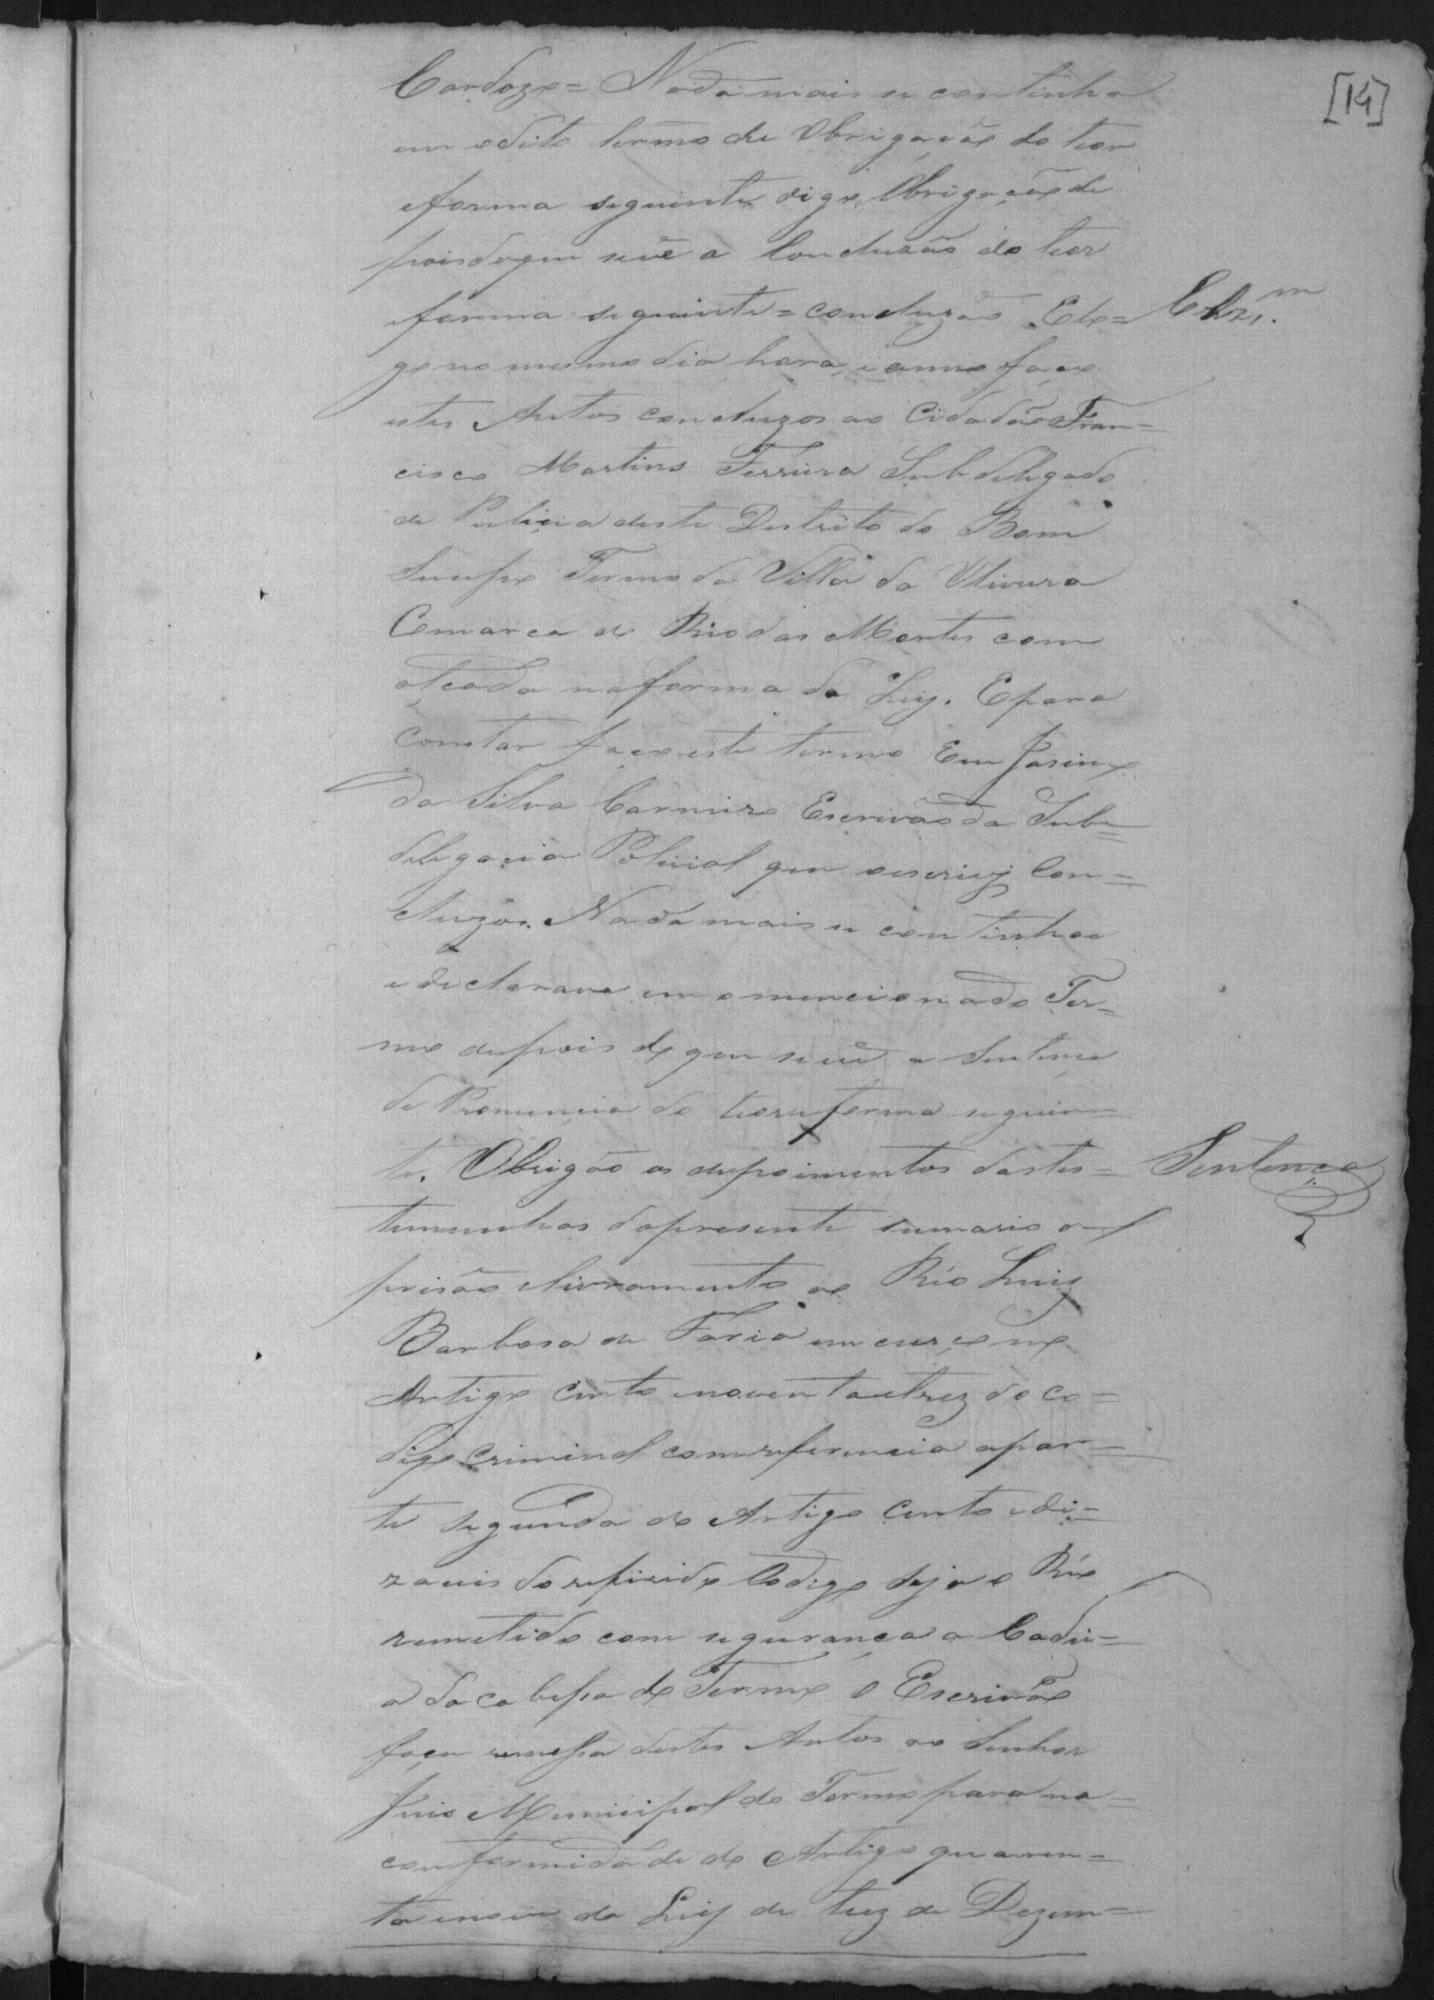 [14]
Cardozo = Nada mais se continha
em odito termo de Obrigação do teor
eforma seguinte digo Obrigação de
pois doque se vê a Concluzão do teor
eforma seguinte = concluzão. Elo =
Clzm.
go no mesmo dia hora, e anno faço
estes Autos concluzos ao Cidadão Fran=
cisco Martins Ferreira Subdelegado
de Policia deste Destrito do Bom
Sucesso Termo da Villa da Oliveira
Comarca do Rio das Mortes com
alçada naforma da Ley. Epara
constar faço este termo Eu Jasinto
da Silva Carneiro Escrivão da Sub=
delegacia Policial que oescrivij Con=
cluzos. Nada mais se continha
e declarava em o mencionado Ter=
mo depois do que se vê a Sentença
de Pronuncia do teor eforma seguin=
te. Obrigão os depoimentos dastes=
Sentença
temunhas dopresente sumario a
prisão elivramento ao Réo Luiz
Barbosa de Faria em curço no
Artigo cento enoventa etrez do Co=
digo Criminal comreferencia apar=
te segunda do Artigo cento e de=
zaceis doreferido Codigo seja o Réo
remetido com segurança a Cadei=
a da cabessa do Termo O Escrivão
faça remessa destes Autos ao Senhor
Juis Municipal do Termo para na
conformidade do Artigo quaren=
ta enove da Ley de trez de Dezem=